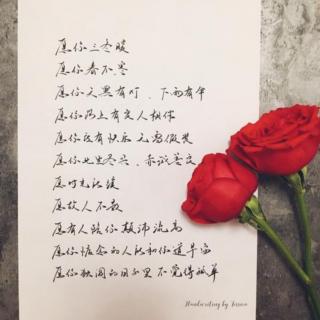 愿你三冬暖
愿你春不寒
愿你天黑有灯、下雨有伞
愿你路上有良人相伴
愿你所有快乐 无需假装
愿你此生尽兴、赤诚善良
愿时光能缓
愿故人不散
愿有人陪你 颠沛流离
愿你惦念的人能和你道早安
愿你独闯的日子里 不觉得孤单
Handwriting by